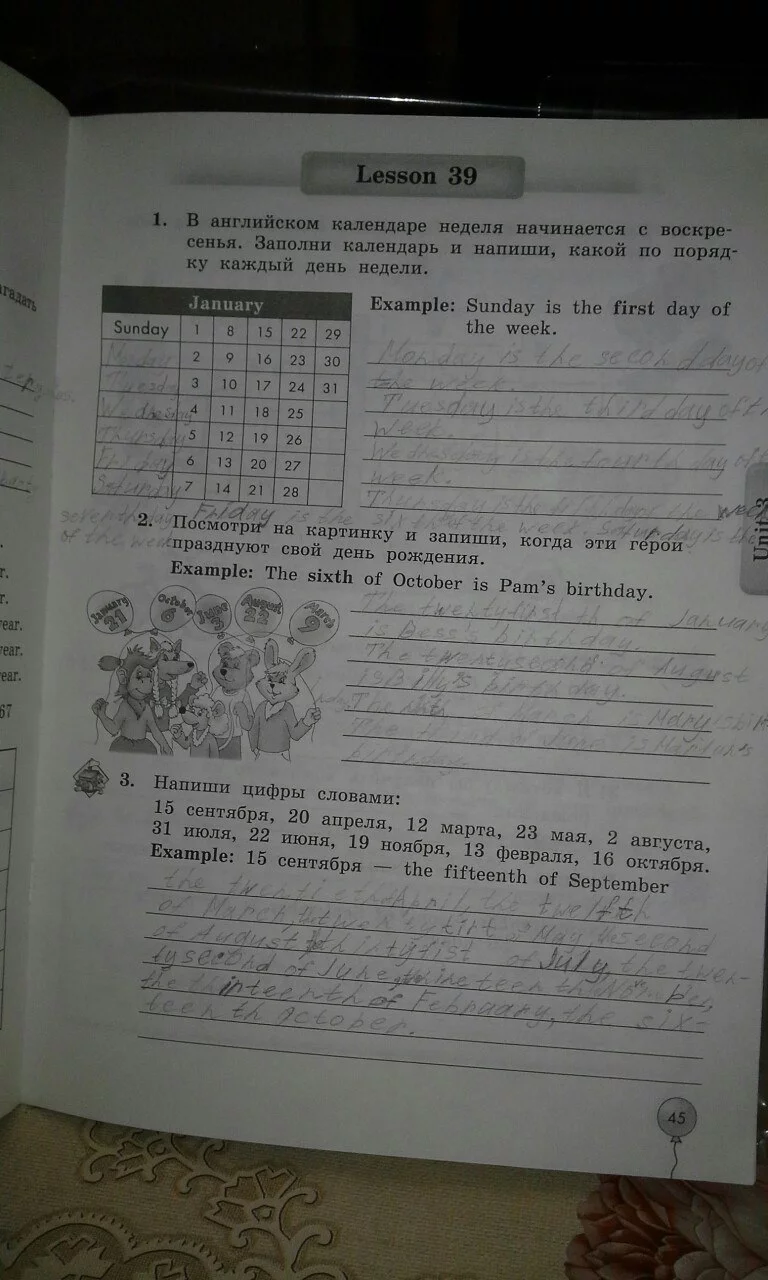 Lesson 39
1. В английском календаре неделя начинается с воскре-
сенья. Заполни календарь и напиши, какой по поряд-
ку каждый день недели.
January
Sunday 1 8 15 22 29
Monday 2 9 16 23 30
Tuesday 3 10 17 24 31
Wednesday 4 11 18 25
Thursday 5 12 19 26
Friday 6 13 20 27
Saturday 7 14 21 28
Example: Sunday is the first day of
the week.
Monday is the second day of
the week.
Tuesday is the third day of th
week.
Wednesday is the fourth day of
week.
Thursday is the day week
Friday is the six of the week. Saturday is the
seventh day
of the week
2. Посмотри на картинку и запиши, когда эти герои
празднуют свой день рождения.
Example: The sixth of October is Pam's birthday.
January 21
October 6
June 3
August 22
March 9
The twentyfirst th of January
is Bess's birthday.
The of August
is Billy's birthday.
The of March is Mary's
The of June is Martin's
birthday.
3. Напиши цифры словами:
15 сентября, 20 апреля, 12 марта, 23 мая, 2 августа,
31 июля, 22 июня, 19 ноября, 13 февраля, 16 октября.
Example: 15 сентября — the fifteenth of September
the April, the twelfth
of March, May the second
of August thirtyfist of July, the twen-
tysecond of June,
the thinteenth of February, the six-
teenth october.
45
Unit 3
агадать
r.
r.
ear.
ear.
ear.
67